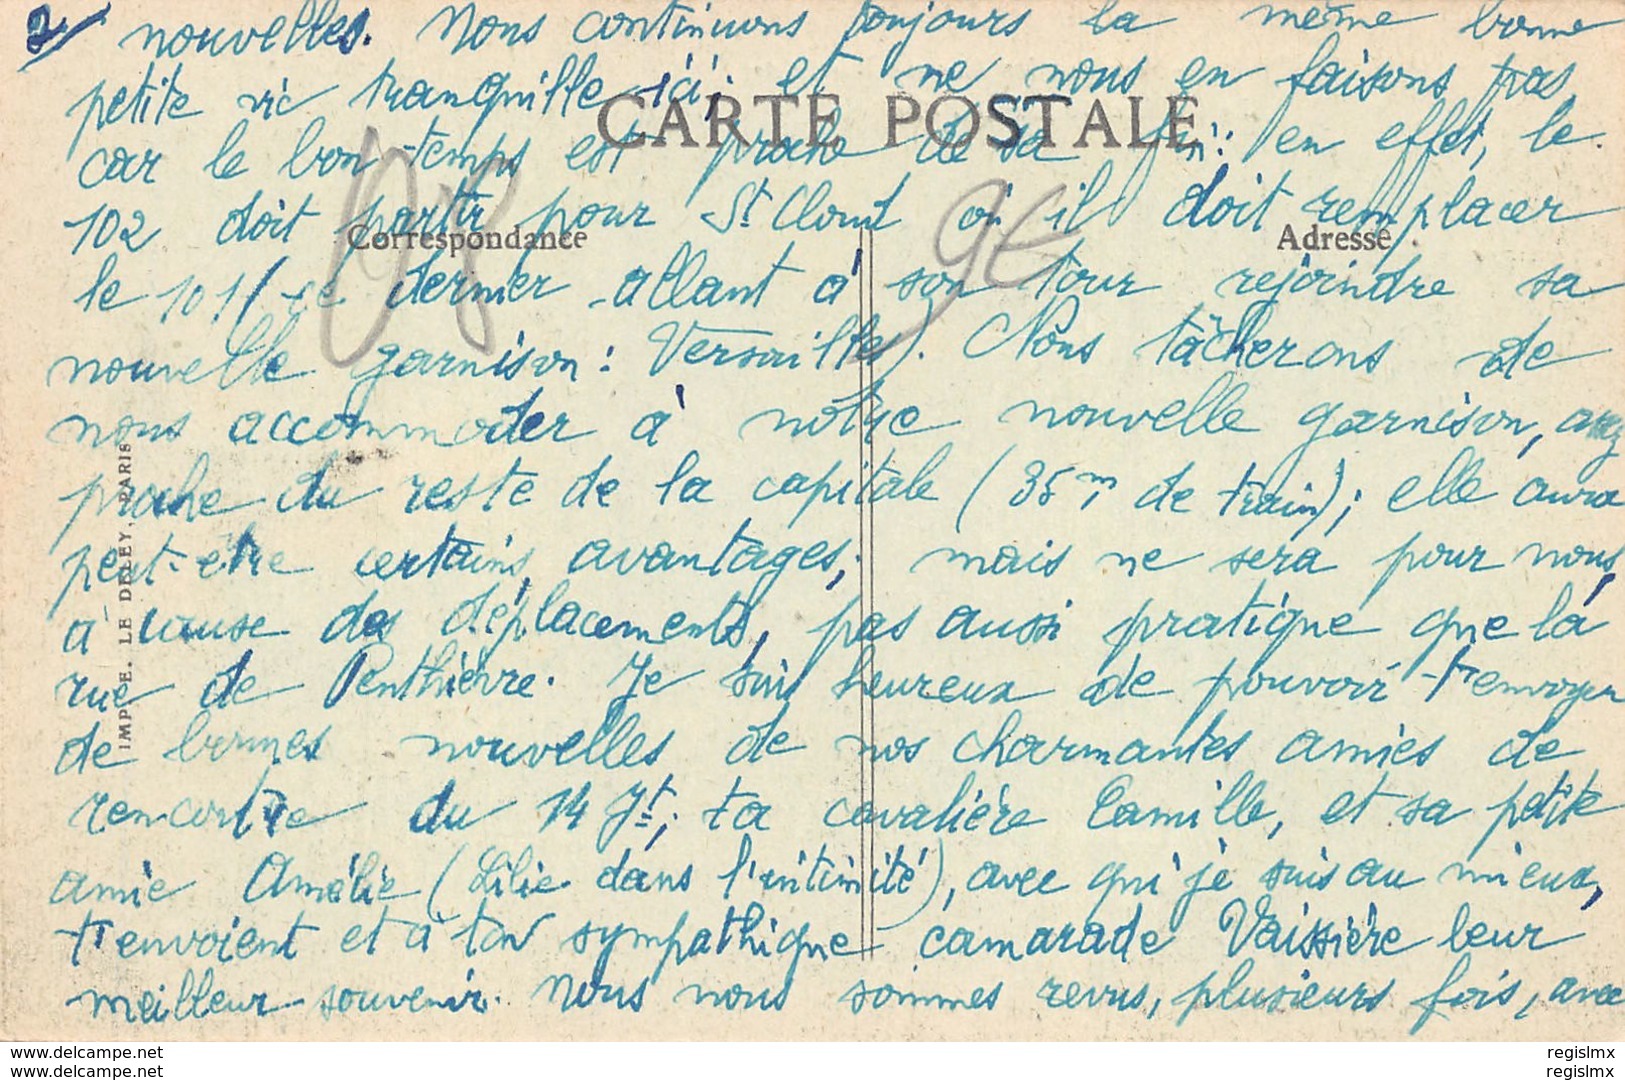 2/ nouvelles. Nous continuons toujours la même bonne
petite vie tranquille ici; et ne nous en faisons pas,
CARTE POSTALE
car le bon temps est proche de sa fin: en effet, le
102 doit partir pour St Cloud où il doit remplacer
Correspondance
Adresse
le 101 (ce dernier allant à son tour rejoindre sa
nouvelle garnison: Versailles). Nous tâcherons de
nous accommoder à notre nouvelle garnison, assez
proche du reste de la capitale (35m, de train); elle aura
peut-être certains avantages; mais ne sera pour nous,
à cause des déplacements, pas aussi pratique que la
rue de Penthièvre. Je suis heureux de pouvoir t'envoyer
de bonnes nouvelles de nos charmantes amies de
rencontre du 14 Jt; ta cavalière Camille, et sa petite
amie Amélie (Lilie dans l'intimité), avec qui je suis au mieux,
t'envoient et à ton sympathique camarade Vaissière leur
meilleur souvenir. Nous nous sommes revus, plusieurs fois, avec
IMP. E. LE DELEY, PARIS
delcampe.net
regislmx
delcampe.net
regislmx